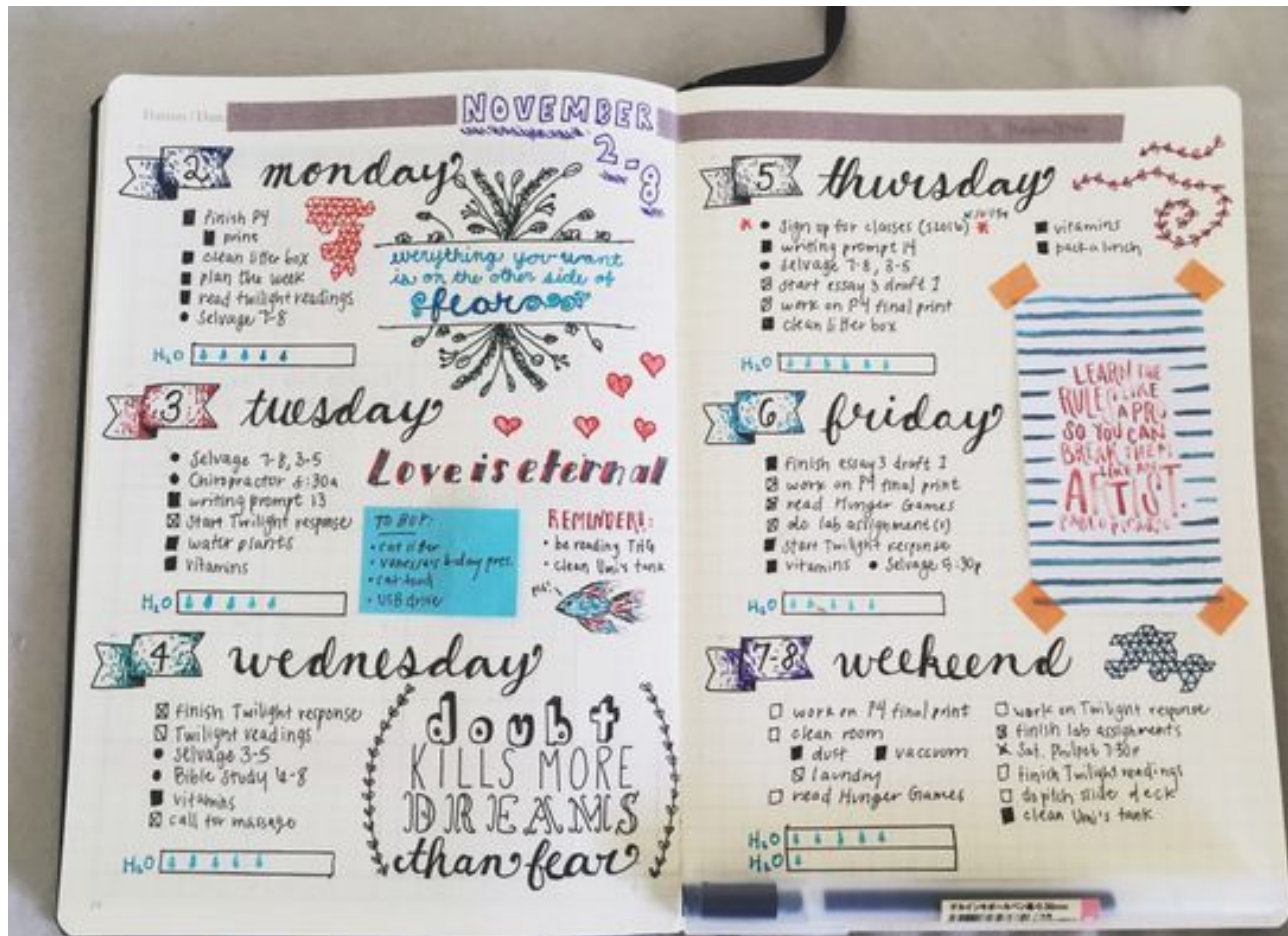 NOVEMBER
2-8
2 monday
finish P4
print
clean litter box
plan the week
read twilight readings
Selvage 7-8
H₂O
everything you want
is on the other side of
fear
3 tuesday
Selvage 7-8, 3-5
Chiropractor :30a
writing prompt 13
Start Twilight response
water plants
vitamins
H₂O
Love is eternal
TO BUY:
• cat litter
• vanessa's b-day pres.
• cat food
• USB drive
REMINDER!:
• be reading THG
• clean Umi's tank
4 wednesday
finish Twilight response
Twilight readings
Selvage 3-5
Bible Study 6-8
vitamins
call for massage
H₂O
doubt
KILLS MORE
DREAMS
than fear
5 thursday
Sign up for classes (S2016)
writing prompt 14
Selvage 7-8, 3-5
start essay 3 draft 1
work on P4 final print
clean litter box
vitamins
pack a lunch
H₂O
6 friday
finish essay 3 draft 1
work on P4 final print
read Hunger Games
do lab assignment(s)
Start Twilight response
vitamins • Selvage 5:30p
H₂O
LEARN THE
RULES LIKE
A PRO
SO YOU CAN
BREAK THEM
LIKE AN
ARTIST.
PABLO PICASSO
7-8 weekend
work on P4 final print
clean room
dust vaccuum
laundry
read Hunger Games
work on Twilight response
finish lab assignments
Sat. 7:30p
finish Twilight readings
do pitch slide deck
clean Umi's tank
H₂O
H₂O